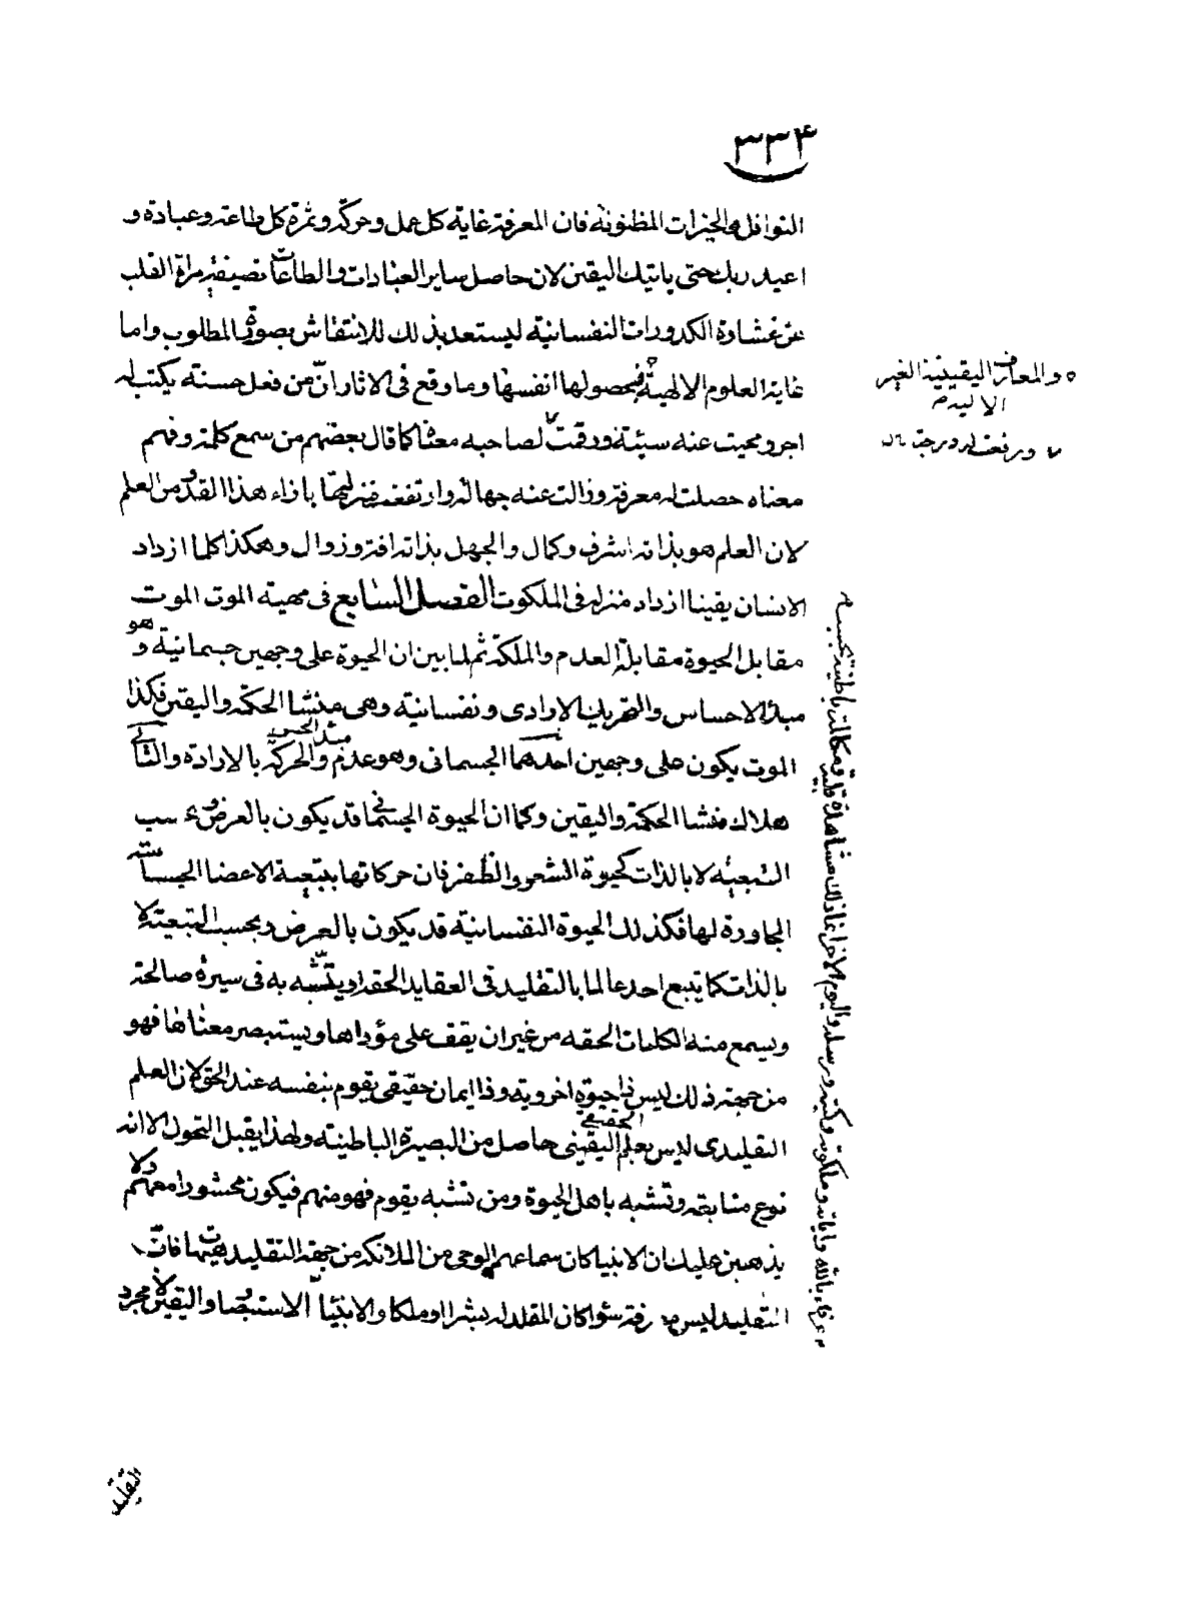 ٣٣٤
النوافل والخيرات المظنونة فان المعرفة غاية كل عمل وحركة وثمرة كل طاعة وعبادة و
اعبد ربك حتى ياتيك اليقين لان حاصل ساير العبادات والطاعات تصفية مرآة القلب
عن غشاوة الكدورات النفسانية ليستعد بذلك للانتقاش بصورة المطلوب واما
غاية العلوم الالهية فحصولها انفسها وما وقع فى الاثار ان من فعل حسنة يكتب له
اجر ومحيت عنه سيئة ورفعت لصاحبه معناه كما قال بعضهم من سمع كلمة وفهم
معناه حصلت له معرفة وزالت عنه جهالة وارتفعت بازاء هذا القدر من العلم
لان العلم هو بذاته شرف وكمال والجهل بذاته افة وزوال وهكذا كلما ازداد
الانسان يقينا ازداد منزله فى الملكوت الفصل السابع فى مهية الموت الموت
مقابل الحيوة مقابلة العدم والملكة ثم لما بين ان الحيوة على وجهين جسمانية وهو
مبدأ الاحساس والتحريك الارادى ونفسانية وهى منشا الحكمة واليقين فكذا
الموت يكون على وجهين احدهما الجسمانى وهو عدم مبدء الحس والحركة بالارادة والثانى
هلاك منشا الحكمة واليقين وكما ان الحيوة الجسمانى قد يكون بالعرض وبحسب
التبعية لا بالذات كحيوة الشعر والظفر فان حركاتها بتبعية الاعضا الحساسة
المجاورة لها فكذلك الحيوة النفسانية قد يكون بالعرض وبحسب التبعية لا
بالذات كما يتبع احد عالما بالتقليد فى العقايد الحقة او يتشبه به فى سيرة صالحة
ويسمع منه الكلمات الحقه من غير ان يقف على مؤداها ويستبصر معناها فهو
من جهة ذلك ليس ذا حيوة اخروية وذا ايمان حقيقى يقوم بنفسه عند الحق لان العلم
التقليدى ليس بعلم الحقيقى اليقينى حاصل من البصيرة الباطنية ولهذا يقبل التحول الا انه
نوع متابعة وتشبه باهل الحيوة ومن تشبه بقوم فهو منهم فيكون محشورا معهم ولا
يذهبن عليك ان الانبيا كان سماعهم الوحى من الملائكة من جهة التقليد هيهات فان
التقليد ليس معرفة سؤا كان المقلد له بشرا او ملكا والانبيا الاستبصار واليقين لا مجرد
والمعارف اليقينية الغير
الالية
ورفعت له درجة
عرفاء بالله واياته وملكوته وكتبه ورسله واليوم الاخر انما ذلك مشاهدة قلبية ومكالمة باطنية
التقليد